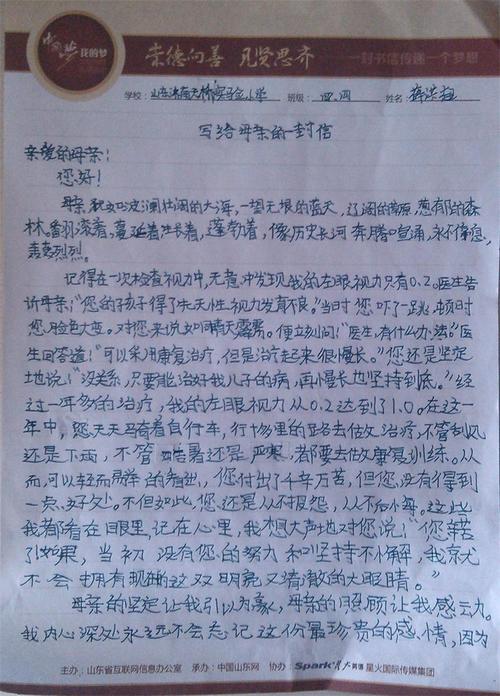 中国梦 我的梦
崇德向善 见贤思齐
一封书信传递一个梦想
学校：山东济南天桥 小学 班级：四、四 姓名
写给母亲的一封信
亲爱的母亲：
您好！
母亲就如波澜壮阔的大海，一望无垠的蓝天，辽阔的草原，葱郁的森
林。翻滚着，蔓延着，生长着，蓬勃着，像历史长河奔腾咆涌，永不停息，
轰轰烈烈。
记得在一次检查视力中，无意中发现我的左眼视力只有0.2。医生告
诉母亲：“您的孩子得了先天性视力发育不良。”当时您吓了一跳，顿时
您脸色大变。对您来说如晴天霹雳。便立刻问：“医生，有什么办法？”医
生回答道：“可以采用康复治疗，但是治疗起来很慢长。”您还是坚定
地说：“没关系，只要能治好我儿子的病，再慢长也坚持到底。”经
过一年多的治疗，我的左眼视力从0.2达到了1.0。在这一
年中，您天天骑着自行车，行 里的路去做治疗，不管刮风
还是下雨，不管酷暑还是严寒，都要去做康复训练。从
而，可以轻而易举的看出，您付出了千辛万苦，但您没有得到
一点好处。不但如此，您还是从不报怨，从不后悔。这些
我都看在眼里，记在心里，我想大声地对您说：“您辛苦
了！如果，当初没有您的努力和坚持不懈，我就
不会拥有现在的这双明亮又清澈的大眼睛。”
母亲的坚定让我引以为豪，母亲的照顾让我感动。
我内心深处永远不会忘记这份最珍贵的感情，因为
主办：山东省互联网信息办公室 承办：中国山东网 协办：Spark 星火国际传媒集团